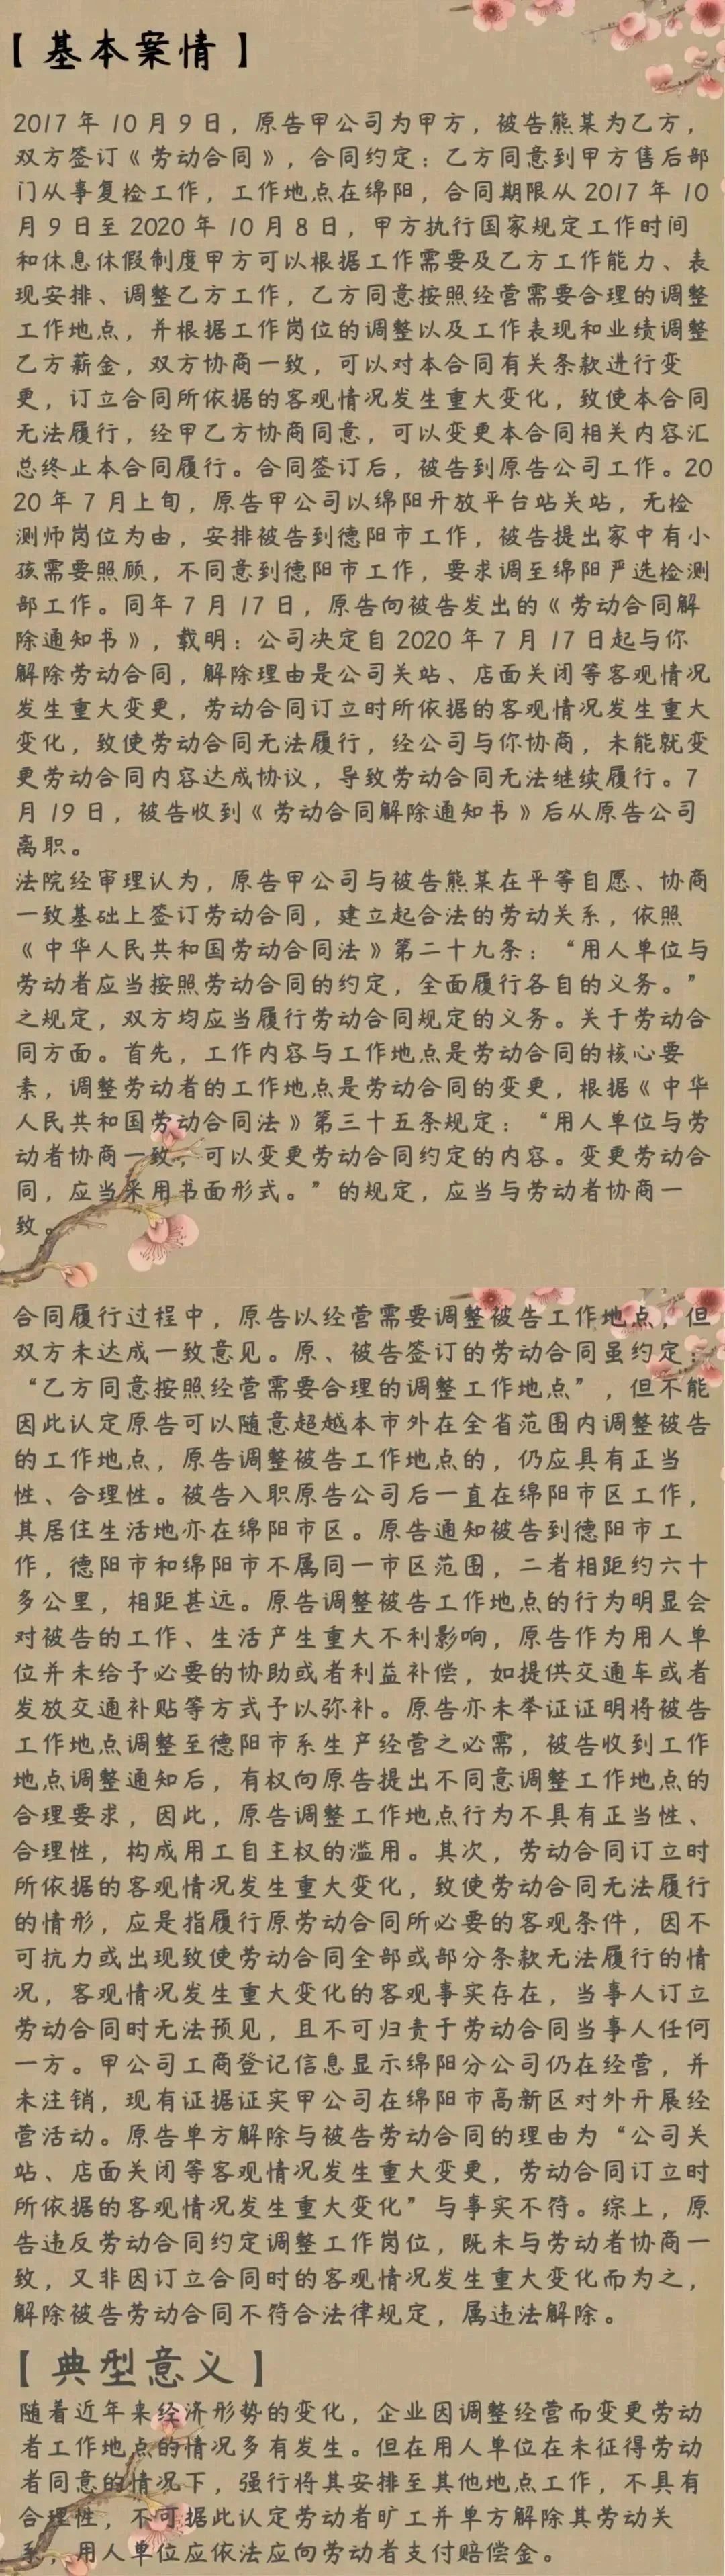 【基本案情】
2017年10月9日，原告甲公司为甲方，被告熊某为乙方，
双方签订《劳动合同》，合同约定：乙方同意到甲方售后部
门从事复检工作，工作地点在绵阳，合同期限从2017年10
月9日至2020年10月8日，甲方执行国家规定工作时间
和休息休假制度甲方可以根据工作需要及乙方工作能力、表
现安排、调整乙方工作，乙方同意按照经营需要合理的调整
工作地点，并根据工作岗位的调整以及工作表现和业绩调整
乙方薪金，双方协商一致，可以对本合同有关条款进行变
更，订立合同所依据的客观情况发生重大变化，致使本合同
无法履行，经甲乙方协商同意，可以变更本合同相关内容汇
总终止本合同履行。合同签订后，被告到原告公司工作。20
20年7月上旬，原告甲公司以绵阳开放平台站关站，无检
测师岗位为由，安排被告到德阳市工作，被告提出家中有小
孩需要照顾，不同意到德阳市工作，要求调至绵阳严选检测
部工作。同年7月17日，原告向被告发出的《劳动合同解
除通知书》，载明：公司决定自2020年7月17日起与你
解除劳动合同，解除理由是公司关站、店面关闭等客观情况
发生重大变更，劳动合同订立时所依据的客观情况发生重大
变化，致使劳动合同无法履行，经公司与你协商，未能就变
更劳动合同内容达成协议，导致劳动合同无法继续履行。7
月19日，被告收到《劳动合同解除通知书》后从原告公司
离职。
法院经审理认为，原告甲公司与被告熊某在平等自愿、协商
一致基础上签订劳动合同，建立起合法的劳动关系，依照
《中华人民共和国劳动合同法》第二十九条：“用人单位与
劳动者应当按照劳动合同的约定，全面履行各自的义务。”
之规定，双方均应当履行劳动合同规定的义务。关于劳动合
同方面。首先，工作内容与工作地点是劳动合同的核心要
素，调整劳动者的工作地点是劳动合同的变更，根据《中华
人民共和国劳动合同法》第三十五条规定：“用人单位与劳
动者协商一致，可以变更劳动合同约定的内容。变更劳动合
同，应当采用书面形式。”的规定，应当与劳动者协商一
致。
合同履行过程中，原告以经营需要调整被告工作地点，但
双方未达成一致意见。原、被告签订的劳动合同虽约定：
“乙方同意按照经营需要合理的调整工作地点”，但不能
因此认定原告可以随意超越本市外在全省范围内调整被告
的工作地点，原告调整被告工作地点的，仍应具有正当
性、合理性。被告入职原告公司后一直在绵阳市区工作，
其居住生活地亦在绵阳市区。原告通知被告到德阳市工
作，德阳市和绵阳市不属同一市区范围，二者相距约六十
多公里，相距甚远。原告调整被告工作地点的行为明显会
对被告的工作、生活产生重大不利影响，原告作为用人单
位并未给予必要的协助或者利益补偿，如提供交通车或者
发放交通补贴等方式予以弥补。原告亦未举证证明将被告
工作地点调整至德阳市系生产经营之必需，被告收到工作
地点调整通知后，有权向原告提出不同意调整工作地点的
合理要求，因此，原告调整工作地点行为不具有正当性、
合理性，构成用工自主权的滥用。其次，劳动合同订立时
所依据的客观情况发生重大变化，致使劳动合同无法履行
的情形，应是指履行原劳动合同所必要的客观条件，因不
可抗力或出现致使劳动合同全部或部分条款无法履行的情
况，客观情况发生重大变化的客观事实存在，当事人订立
劳动合同时无法预见，且不可归责于劳动合同当事人任何
一方。甲公司工商登记信息显示绵阳分公司仍在经营，并
未注销，现有证据证实甲公司在绵阳市高新区对外开展经
营活动。原告单方解除与被告劳动合同的理由为“公司关
站、店面关闭等客观情况发生重大变更，劳动合同订立时
所依据的客观情况发生重大变化”与事实不符。综上，原
告违反劳动合同约定调整工作岗位，既未与劳动者协商一
致，又非因订立合同时的客观情况发生重大变化而为之，
解除被告劳动合同不符合法律规定，属违法解除。
【典型意义】
随着近年来经济形势的变化，企业因调整经营而变更劳动
者工作地点的情况多有发生。但在用人单位在未征得劳动
者同意的情况下，强行将其安排至其他地点工作，不具有
合理性，不可据此认定劳动者旷工并单方解除其劳动关
系，用人单位应依法应向劳动者支付赔偿金。